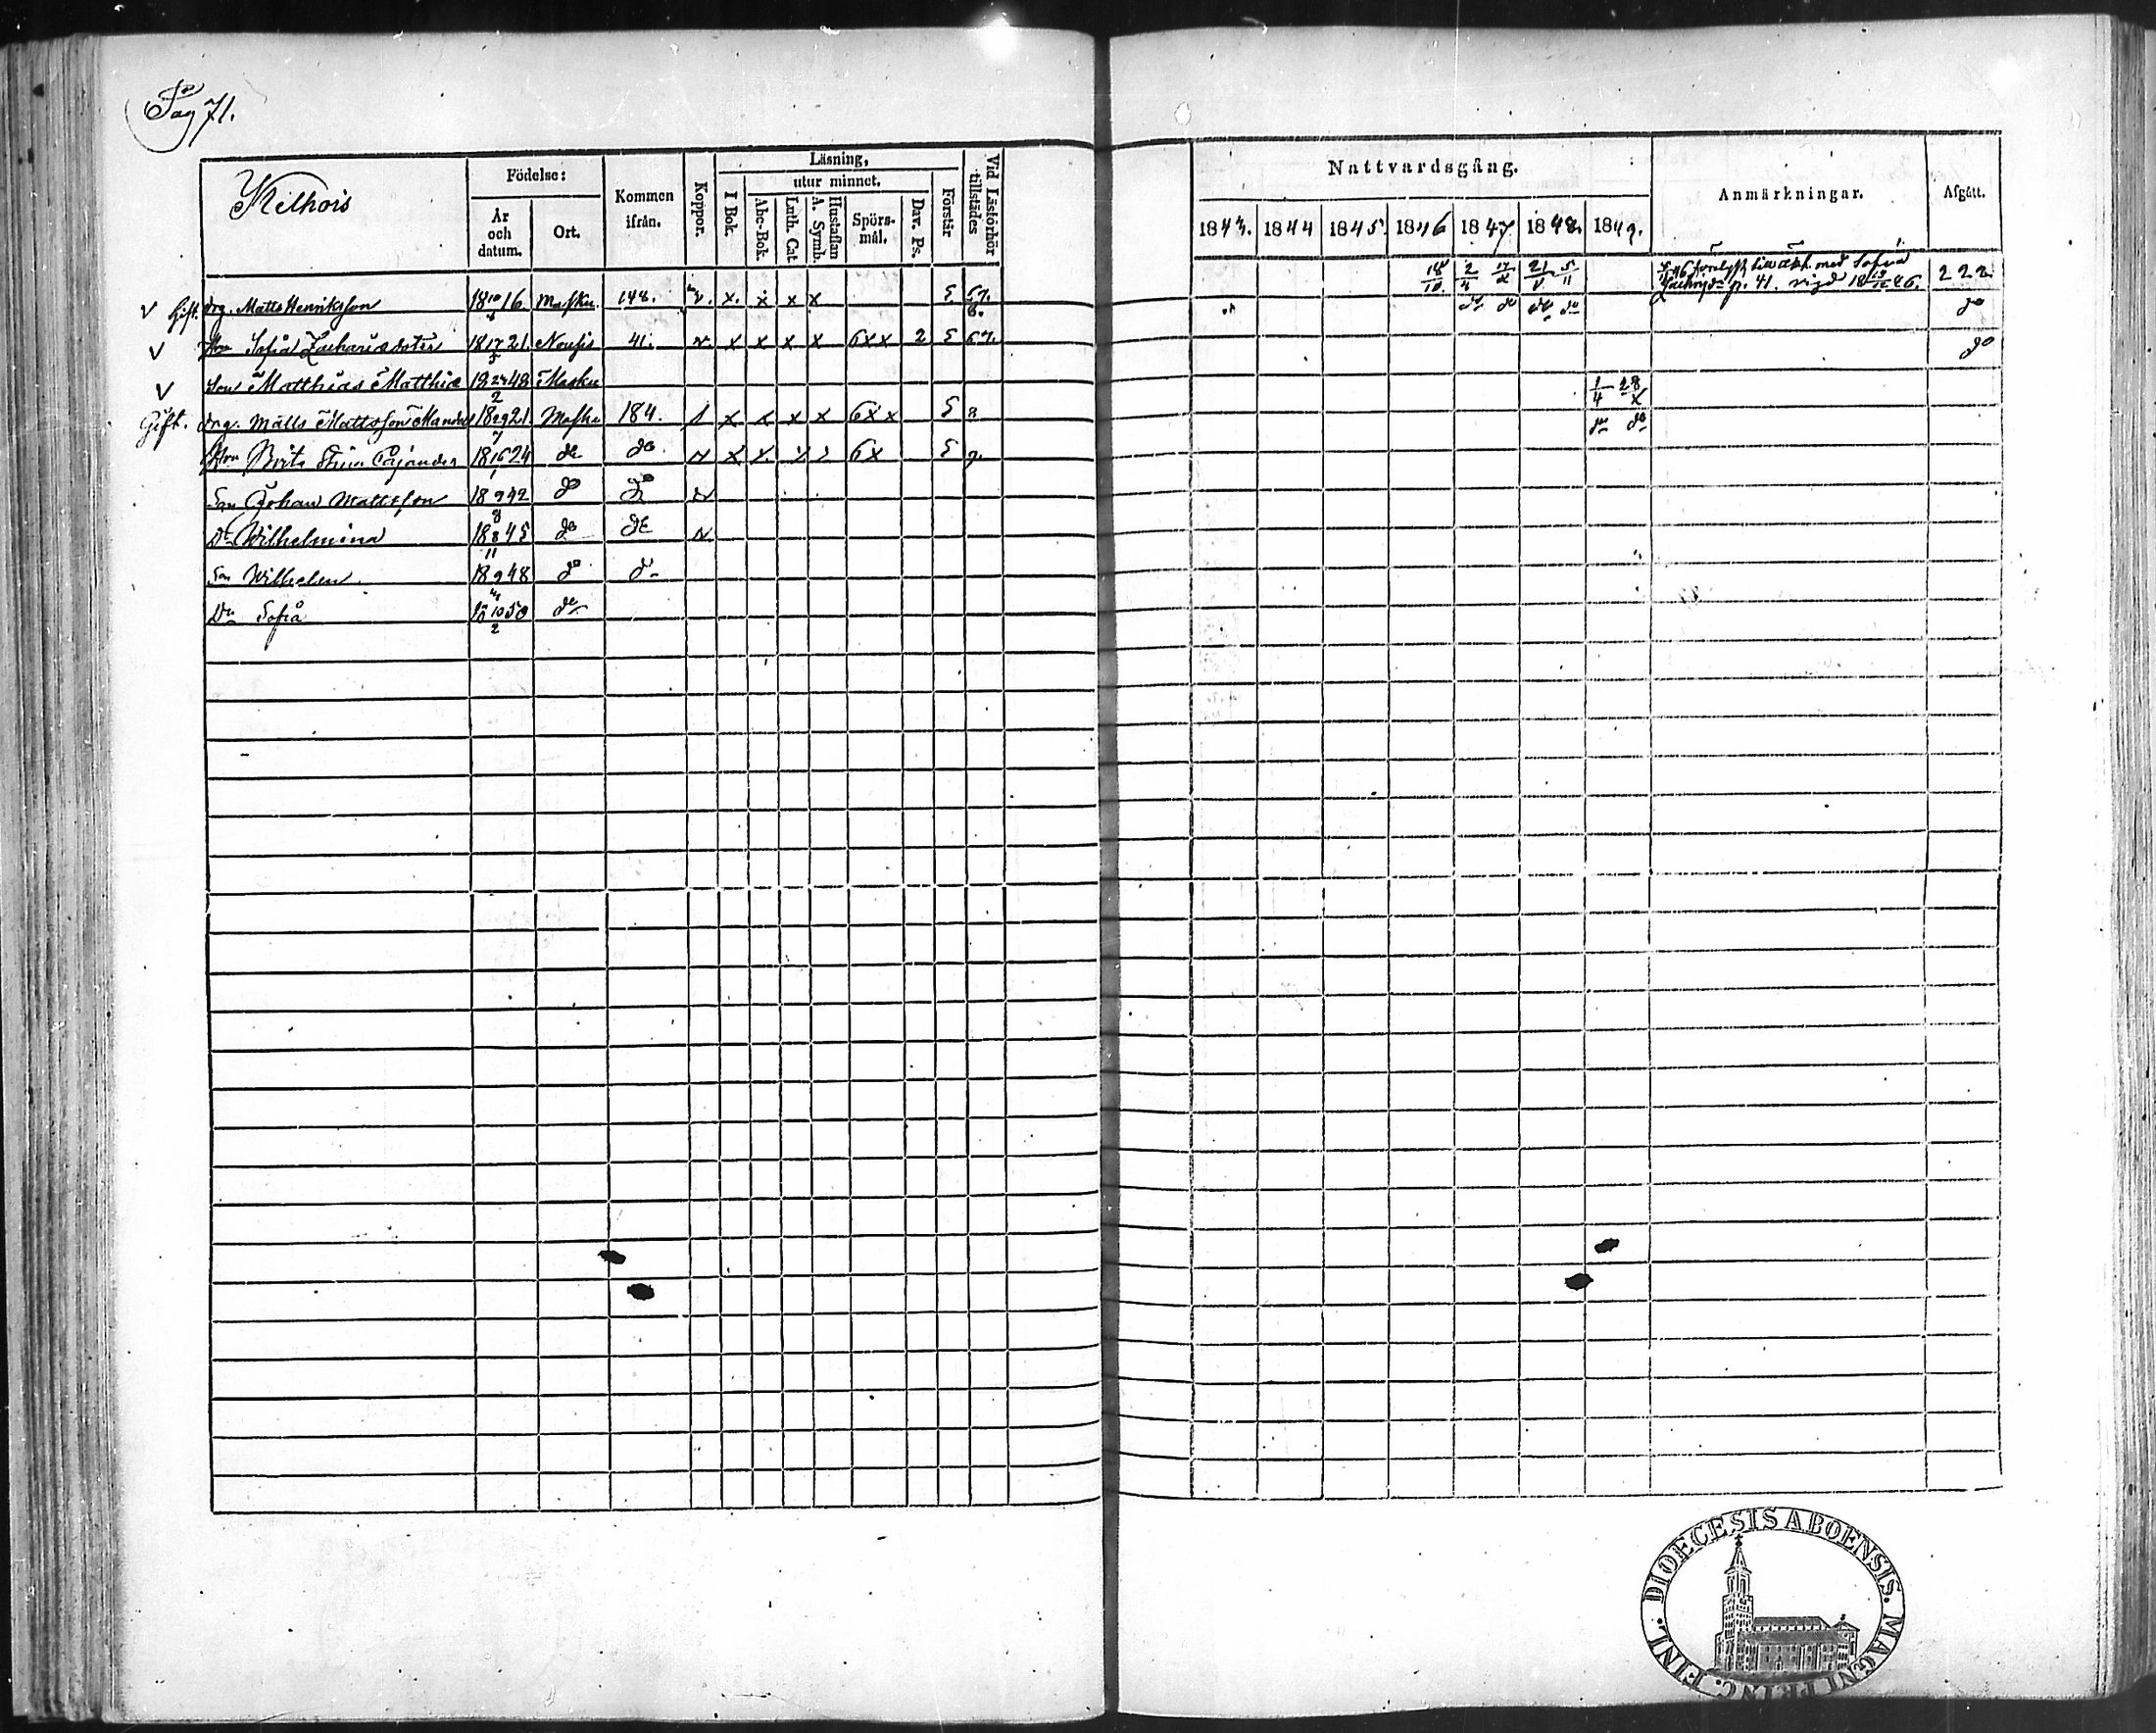 Pag 71.
Kelhois
Födelse:
År och datum.
Ort.
Kommen ifrån.
Koppor.
Läsning,
I Bok.
utur minnet.
Abc-Bok.
Luth. Cat
Hustaflan A. Symb.
Spörs-mål.
Dav. Ps.
Förstår
Vid Läsförhör tillstädes
Nattvardsgång.
1843. 1844 1845. 1846 1847 1848. 1849.
Anmärkningar.
Afgått.
v Gift. drg. Matts Henriksson 18 10 16. Masku 148. v. x. x x x 18/10 2/4 21 5/11 med Sofia p. 41. vigd 18 46. 222.
v Hru Sofia Zachariædoter 18 17/5 21. Nousis 41. v. x x x x 6xx 2 67. do do do do do
v Son Matthias Matthiæ 18 24/2 48 Masku do
Gift. drg. Matts Mattsson 18 29/7 21. Masku 184. x x x x 6xx 1/4 28/X
Hru Brita Cajander 18 16/1 24 do do v x x. 6x do do
Son Johan Mattsson 18 9/8 42 do do v
Dr Wilhelmina 18 8/11 45 do do v
Son Wilhelm 18 9 48 do do
Dr Sofia 18 10/2 50 do
DIOECESIS ABOENSIS. MAGNI PRINC. FINL.